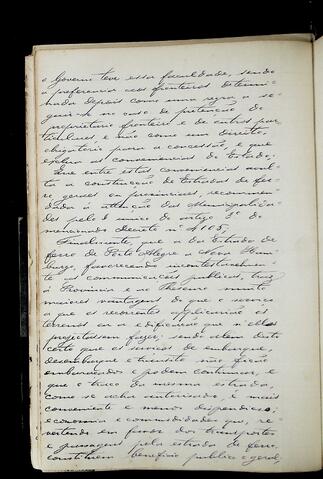 o Governo teve essa faculdade, sendo
a preferencia aos fronteiros determi-
nada depois como uma regra a se-
guir-se no caso de pretenção do
proprietario fronteiro e de outros par
ticulares e não como um direito,
obrigatorio para a concessão, e que
exclua as conveniencias do Estado;
Que entre estas conveniencias avul-
ta a construcção de Estradas de fer-
ro geraes ou provinciaes recommen-
dada á attenção das Municipalida-
des pelo § unico do artigo 2º do
mencionado decreto nº 4105;
Finalmente, que a da Estrada de
ferro de Porto Alegre a Nova Ham-
burgo, favorecendo incontestavelmen-
te as communicações publicas, traz
á Provincia e ao Thesouro muito
maiores vantagens do que o serviço
a que os recorrentes applicarião os
terrenos ou a edificação que n'elles
projectassem fazer; sendo alem disto
certo que os serviços de embarque,
desembarque e transito não ficão
embaraçados e podem continuar, e
que o traço da mesma estrada,
como se acha autorisado, é mais
conveniente e menos dispendioso;
economia e commodidades que, re-
vertendo em favor dos transportes
e passagens pela estrada de ferro,
constituem beneficio publico e geral,